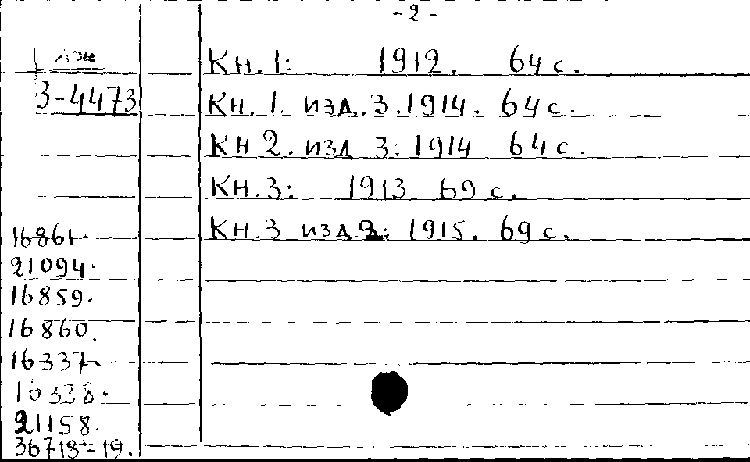 -2-
Кн. 1: 1912. 64 с.
3-4473
Кн. 1. изд. 3. 1914. 64 с.
Кн 2. изд 3: 1914 64 с.
Кн. 3: 1913 69 с.
Кн. 3 изд. : 1915. 69 с.
16861.
21094.
16859.
16860.
16337.
16338.
21158.
36718-19.